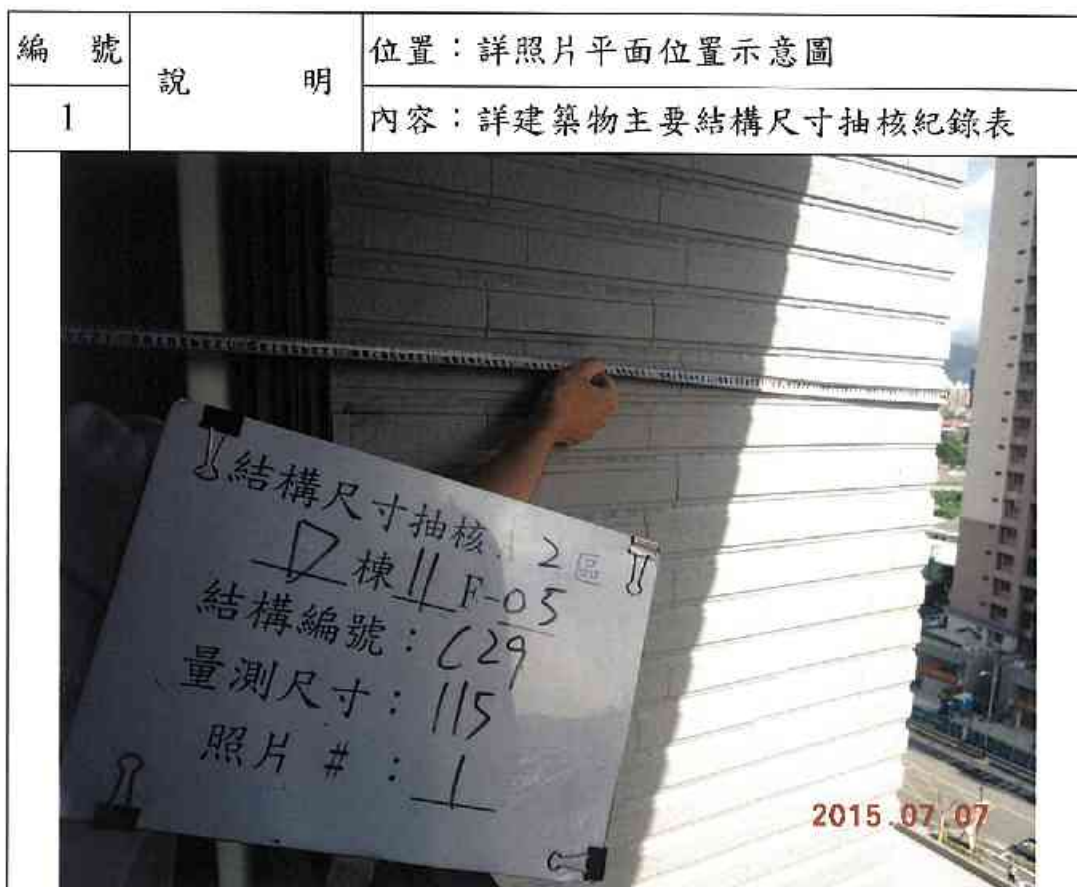 編 號
說 明
位置：詳照片平面位置示意圖
1
內容：詳建築物主要結構尺寸抽核紀錄表
結構尺寸抽核 2 區
D 棟 11 F-05
結構編號：C29
量測尺寸：115
照片 #：1
2015.07.07